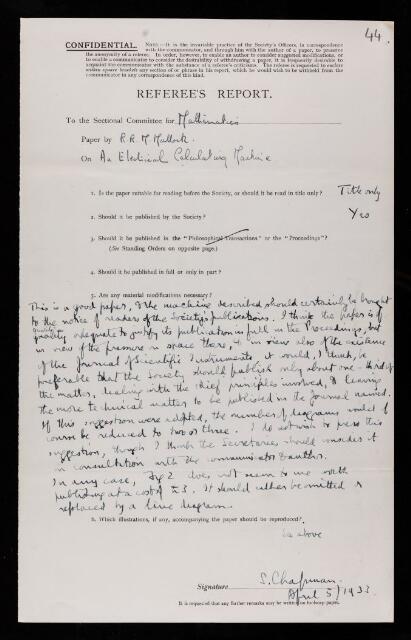 44.
CONFIDENTIAL. NOTE.—It is the invariable practice of the Society's Officers, in correspondence
with the communicator, and through him with the author of a paper, to preserve
the anonymity of a referee. In order, however, to enable an author to consider suggested modifications, or
to enable a communicator to consider the desirability of withdrawing a paper, it is frequently desirable to
acquaint the communicator with the substance of a referee's criticisms. The referee is requested to enclose
within square brackets any section of or phrase in his report, which he would wish to be withheld from the
communicator in any correspondence of this kind.
REFEREE'S REPORT.
To the Sectional Committee for Mathematics
Paper by R.R.M. Mallock.
On An Electrical Calculating Machine
1. Is the paper suitable for reading before the Society, or should it be read in title only? Title only
2. Should it be published by the Society? Yes
3. Should it be published in the "Philosophical Transactions" or the "Proceedings"?
(See Standing Orders on opposite page.)
4. Should it be published in full or only in part?
5. Are any material modifications necessary?
This is a good paper, & the machine described should certainly be brought
to the notice of readers of the Society's publications. I think the paper is of
quality adequate to justify its publication in full in the Proceedings, but
in view of the pressure on space there, & in view also of the existence
of the Journal of Scientific Instruments it would, I think, be
preferable that the Society should publish only about one-third of
the matter, dealing with the chief principles involved, & leaving
the more technical matter to be published in the Journal named.
If this suggestion were adopted, the number of diagrams would of
course be reduced to two or three. I do not wish to press this
suggestion, though I think the Secretaries should consider it
in consultation with the communicator & author.
In any case, Fig 2 does not seem to me worth
publishing at a cost of £3. It should either be omitted or
replaced by a line diagram.
6. Which illustrations, if any, accompanying the paper should be reproduced?
See above
Signature S. Chapman.
April 5/1933
It is requested that any further remarks may be written on foolscap paper.